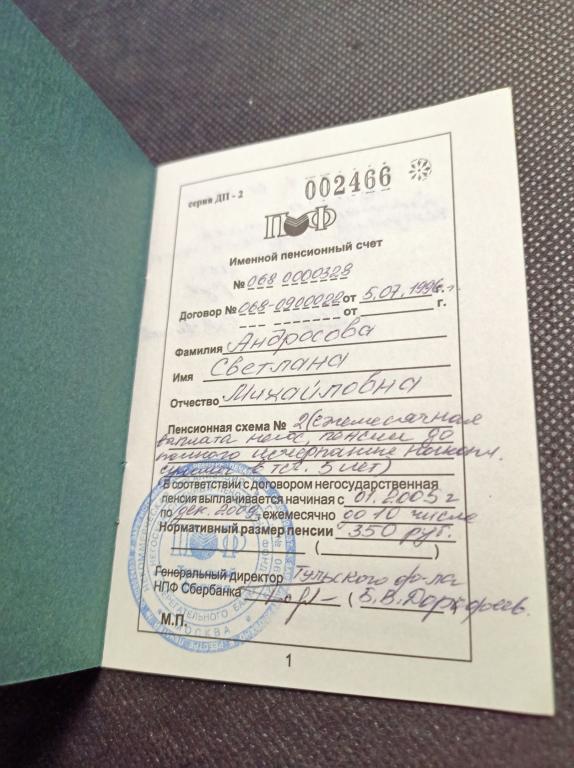 серия ДП - 2
002466
ПФ
Именной пенсионный счет
№ 068 0000328
Договор № 068-0900022 от 5.07.1996 г.
от г.
Фамилия Андросова
Имя Светлана
Отчество Михайловна
Пенсионная схема № 2 (ежемесячная
выплата негос. пенсии до
полного исчерпание
в теч. 5 лет)
В соответствии с договором негосударственная
пенсия выплачивается начиная с 01.2005 г
по дек. 2009, ежемесячно до 10 числа
Нормативный размер пенсии 350 руб.
( )
Генеральный директор Тульского
НПФ Сбербанка (Б.В.
М.П.
МОСКВА
1